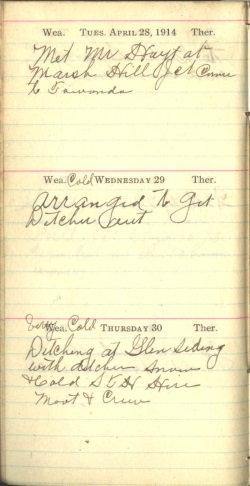 Wea. TUES. APRIL 28, 1914 Ther.
Met Mr Hayt at
Marsh Hill Jct Came
to Towanda
Wea. Cold WEDNESDAY 29 Ther.
arranged to Get
Ditcher out
Very Wea. Cold THURSDAY 30 Ther.
Ditching at Glen Siding
with ditcher Snow
& Cold
Moot & Crew